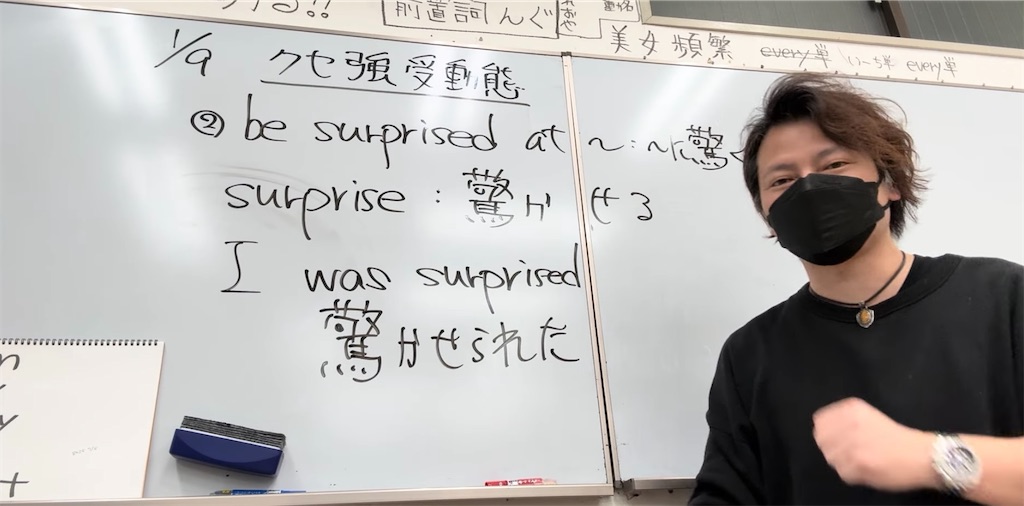 前置詞んぐ
美女頻繁 every単 いーち単 every単
1/9 クセ強受動態
② be surprised at ~:~に驚く
surprise:驚かせる
I was surprised
驚かせられた
n
y
t